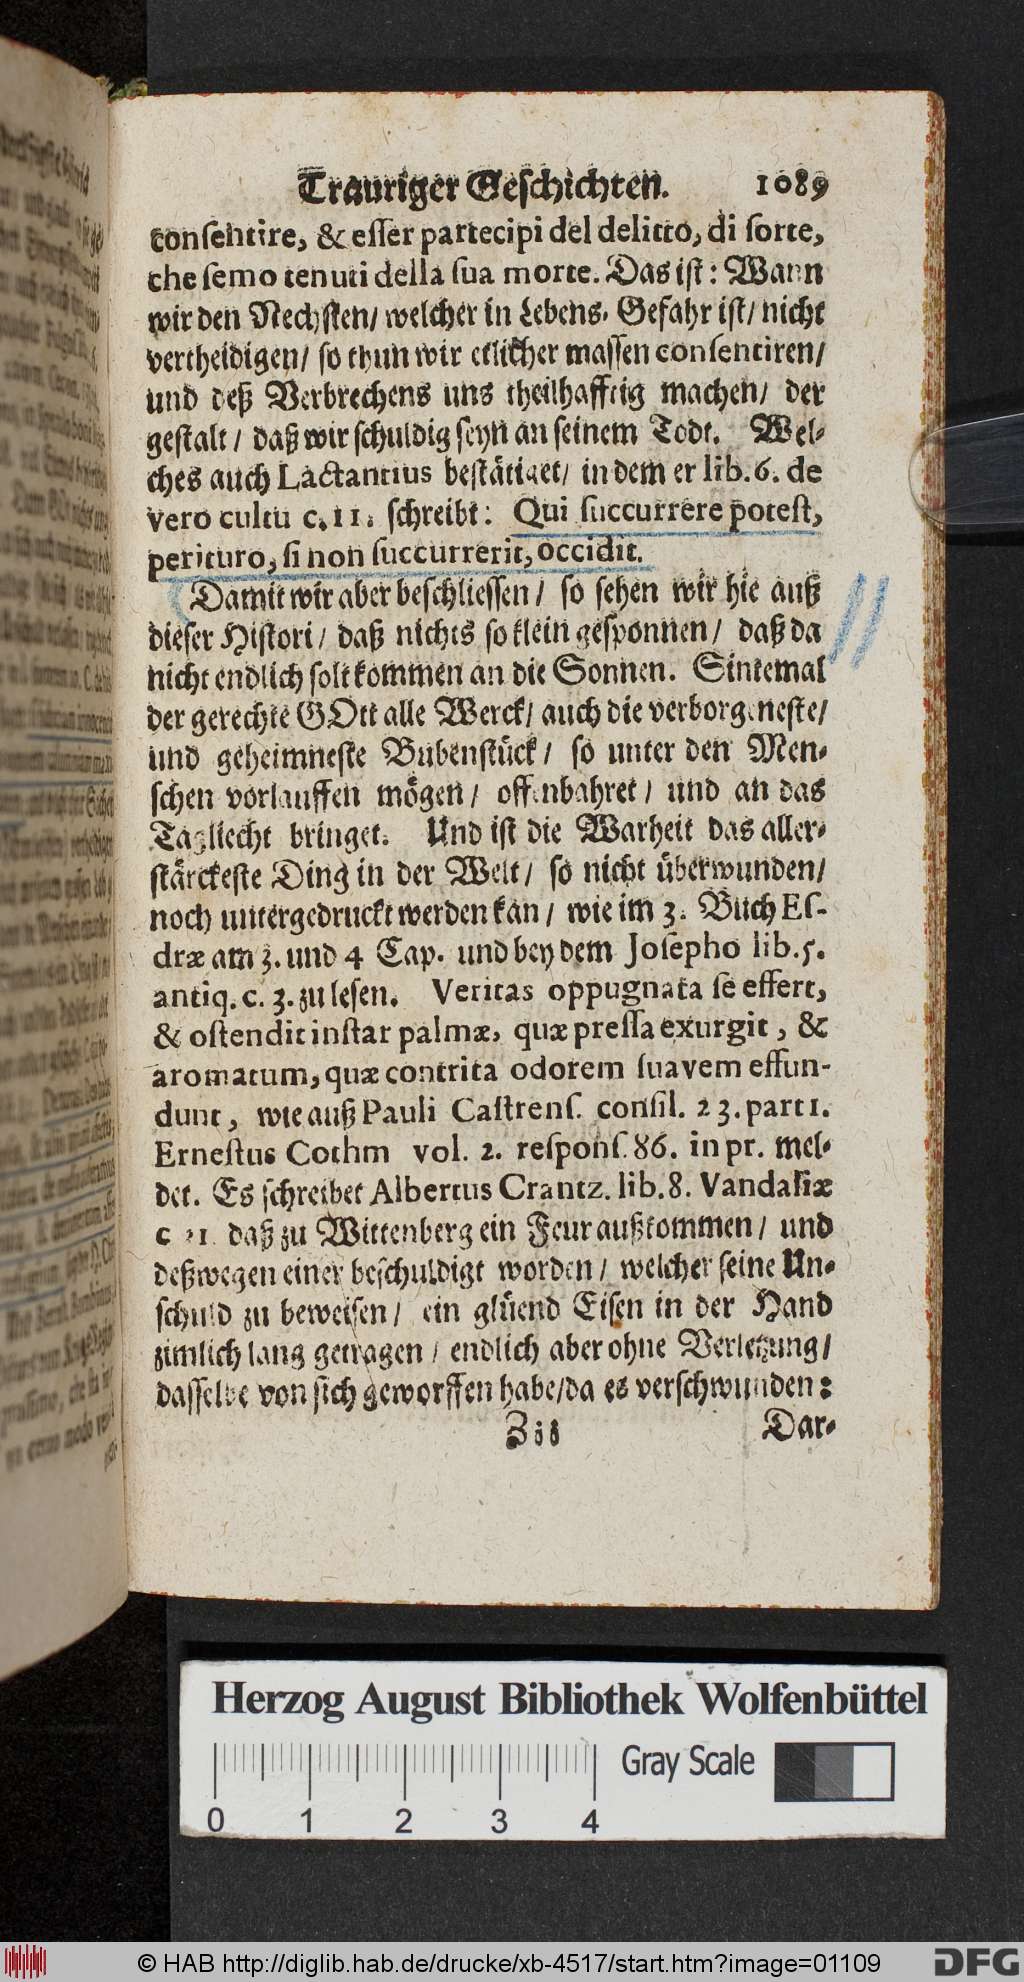 Trauriger Geschichten. 1089
consentire, & esser partecipi del delitto, di sorte,
che semo tenuti della sua morte. Das ist: Wann
wir den Nechsten/ welcher in Lebens. Gefahr ist/ nicht
vertheidigen/ so thun wir etlicher massen consentiren/
und deß Verbrechens uns theilhafftig machen/ der
gestalt/ daß wir schuldig seyn an seinem Todt. Wel-
ches auch Lactantius bestätiget/ in dem er lib. 6. de
vero cultu c. 11. schreibt: Qui succurrere potest,
perituro, si non succurrerit, occidit.
Damit wir aber beschliessen/ so sehen wir hie auß
dieser Histori/ daß nichts so klein gesponnen/ daß da
nicht endlich solt kommen an die Sonnen. Sintemal
der gerechte GOtt alle Werck/ auch die verborgeneste/
und geheimneste Bubenstück/ so unter den Men-
schen vorlauffen mögen/ offenbahret/ und an das
Tagliecht bringet. Und ist die Warheit das aller-
stärckeste Ding in der Welt/ so nicht überwunden/
noch untergedruckt werden kan/ wie im 3. Buch Es-
dræ am 3. und 4 Cap. und bey dem Josepho lib. 5.
antiq. c. 3. zu lesen. Veritas oppugnata se effert,
& ostendit instar palmæ, quæ pressa exurgit, &
aromatum, quæ contrita odorem suavem effun-
dunt, wie auß Pauli Castrens. consil. 23. part 1.
Ernestus Cothm vol. 2. respons. 86. in pr. mel-
det. Es schreibet Albertus Crantz. lib. 8. Vandaliæ
c daß zu Wittenberg ein Feur außkommen/ und
deßwegen einer beschuldigt worden/ welcher seine Un-
schuld zu beweisen/ ein glüend Eisen in der Hand
zimlich lang getragen/ endlich aber ohne Verletzung/
dasselbe von sich geworffen habe/ da es verschwunden:
Zii Dar-
Herzog August Bibliothek Wolfenbüttel
Gray Scale
0 1 2 3 4
© HAB http://diglib.hab.de/drucke/xb-4517/start.htm?image=01109
DFG